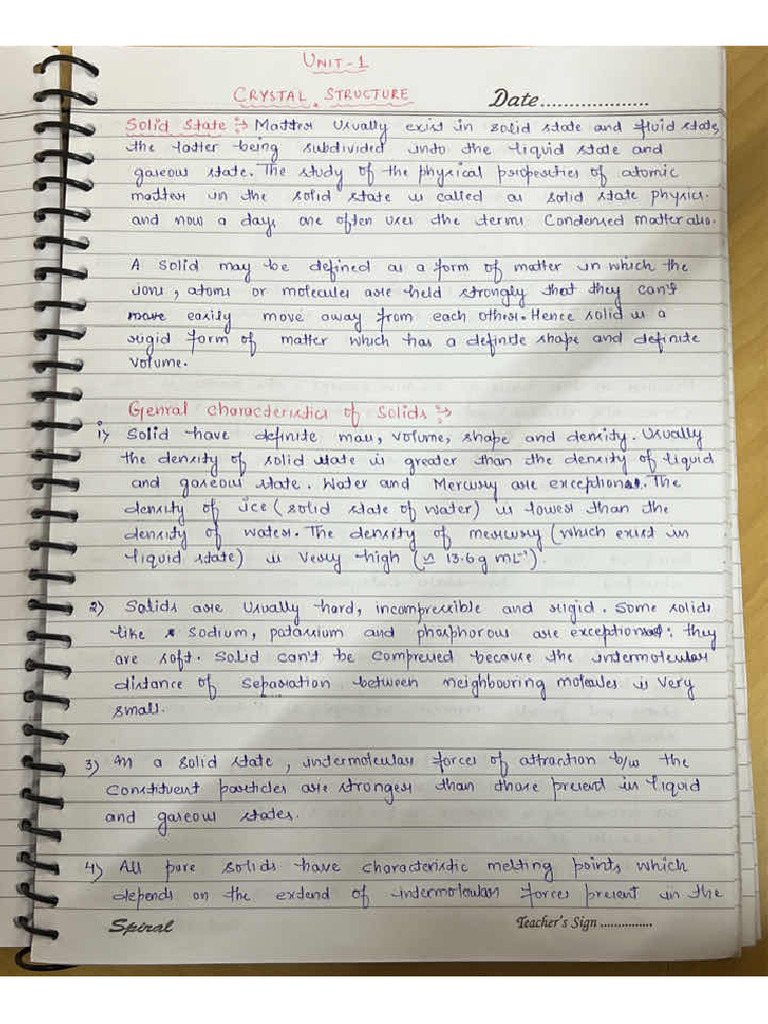 UNIT-1
CRYSTAL STRUCTURE
Date...................
Solid State :- Matter Usually exist in solid state and fluid state,
the latter being subdivided into the liquid state and
gaseous state. The study of the physical properties of atomic
matter in the solid state is called as solid state physics.
and now a days one often uses the terms Condensed matter also.
A solid may be defined as a form of matter in which the
ions, atoms or molecules are held strongly that they can't
easily move away from each other. Hence solid is a
rigid form of matter which has a definite shape and definite
volume.
Genral characteristics of Solids :->
1) Solid have definite mass, volume, shape and density. Usually
the density of solid state is greater than the density of liquid
and gaseous state. Water and Mercury are exceptional. The
density of ice (solid state of water) is lowest than the
density of water. The density of mercury (which exist in
liquid state) is very high (≃ 13.6 g mL⁻¹).
2) Solids are usually hard, incompressible and rigid. Some solids
like Sodium, potassium and phosphorous are exception: they
are soft. Solid can't be compressed because the intermolecular
distance of separation between neighbouring molecules is very
small.
3) In a solid state, intermolecular forces of attraction b/w the
constituent particles are stronger than those present in liquid
and gaseous states.
4) All pure solids have characteristic melting points which
depends on the extend of intermolecular forces present in the
Spiral
Teacher's Sign ...............